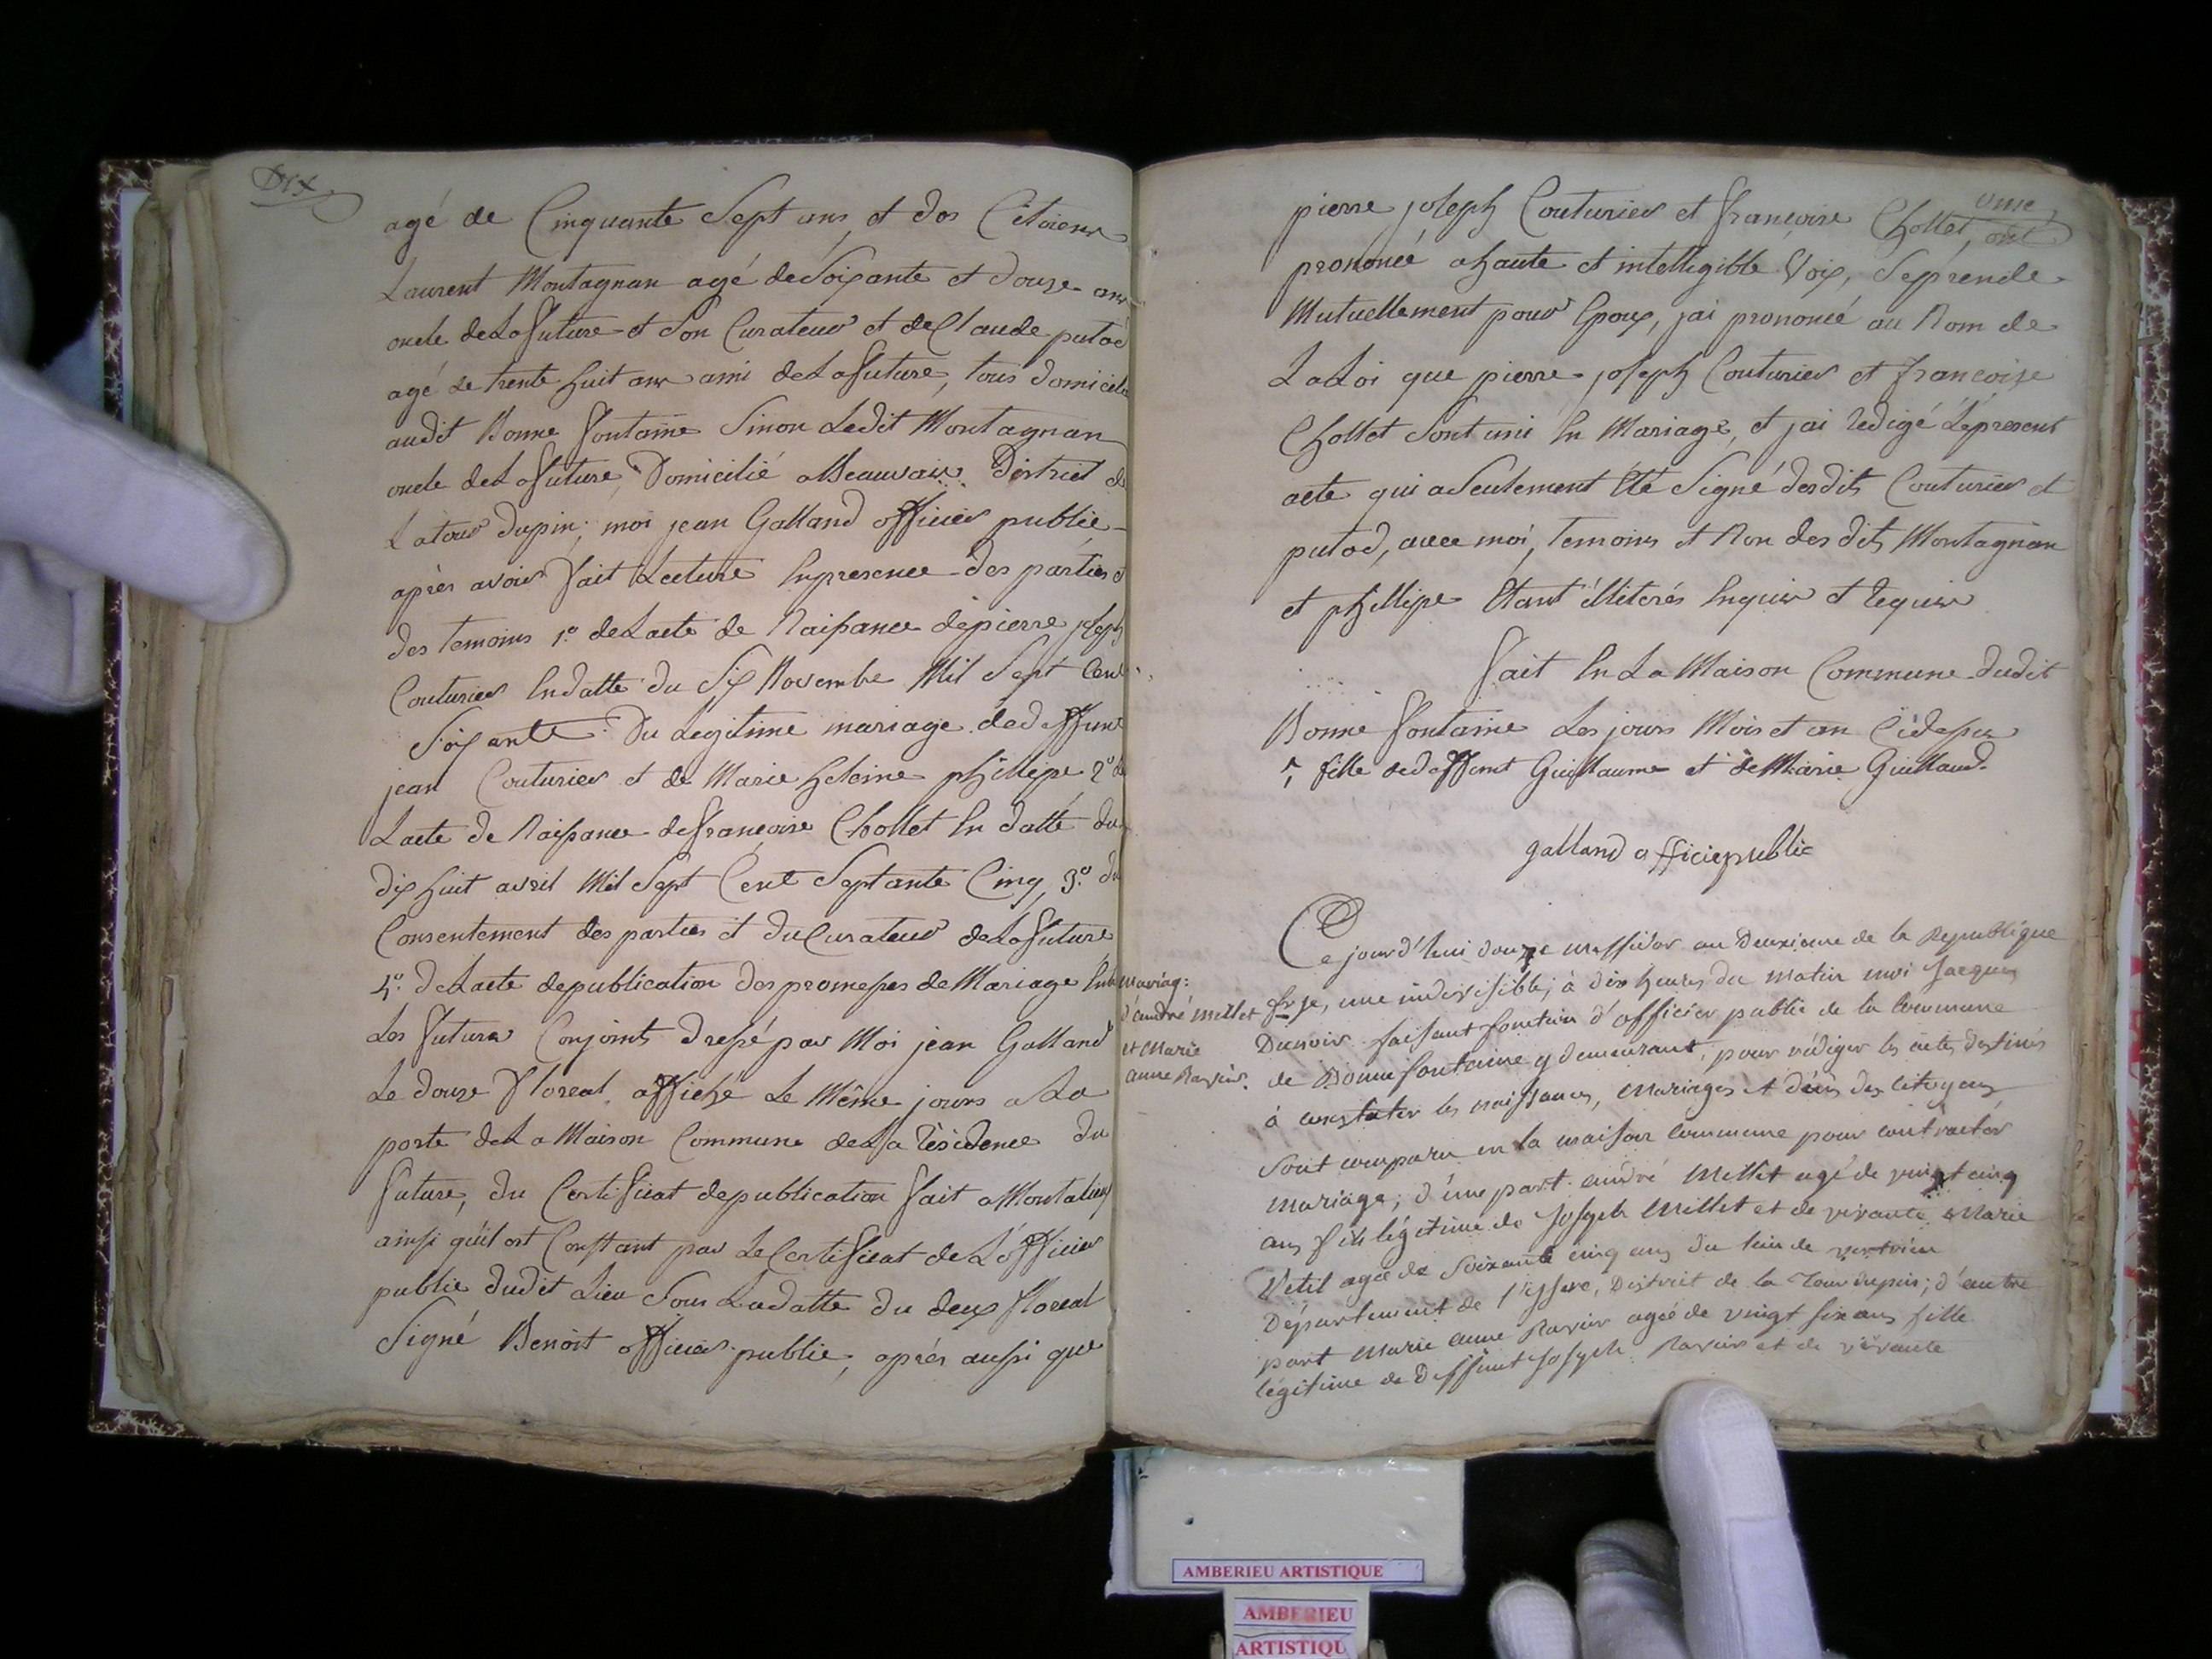 Dix
agé de Cinquante Sept ans, et des Citoiens
Laurent Montagnan agé de Soixante et douze ans
oncle de La future et Son Curateur et de Claude putod
agé de trente huit ans ami de La future, tous domicilié
audit Bonne fontaine Sinon Ledit Montagnan
oncle de La future, Domicilié a Beauvais District de
Latour dupin; moi jean Galland officier public
après avoir fait Lecture En presence des parties et
des temoins 1.º de Lacte de Naissance de pierre joseph
Couturier En datte du Six Novembre Mil Sept Cent
Soixante. Du Legitime mariage de deffunt
jean Couturier et de Marie heleine phillipe 2º de
Lacte de Naissance de françoise Chollet En datte du
dix huit avril Mil Sept Cent Septante Cinq, 3.º du
Consentement des parties et du Curateur de La future
4.º de Lacte de publication des promesses de Mariage Entre
Les futurs Conjoints dressé par Moi jean Galland
Le douze floreal, affiché Le Même jours a La
porte de La Maison Commune de La résidence du
future, du Certificat de publication fait a Montalieu
ainsi qu'il est Constant par Le Certificat de L'officier
public dudit Lieu Sous La datte du deux floreal
Signé Benoit officier public, après aussi que
onze
pierre joseph Couturier et françoise Chollet, ont
prononcé a haute et intelligible Voix, Se prendre
Mutuellement pour Epoux, jai prononcé au Nom de
La Loi que pierre joseph Couturier et françoise
Chollet Sont uni En Mariage, et jai redigé Le present
acte qui a Seulement Eté Signé desdits Couturier et
putod, avec moi, temoins et Non des dits Montagnan
et phillipe Etant illiterés Enquis et requis
fait En La Maison Commune dudit
Bonne fontaine Les jours Mois et an Cidessus
fille de deffunt Guillaume et de Marie Guilland
galland officie public
Mariag:
d'andré millet
et Marie
anne Ravier.
Ce jourd'hui douze messidor an Deuxieme de la Republique
frse, une indivisible, à dix heures du matin moi Jacques
Dunoir faisant fonction d'officier public de la Commune
de Bonne fontaine y demeurant, pour rédiger les actes destinés
à constater les naissances, Mariages et décès des citoyens
Sont comparu en la maison Commune pour contracter
mariage; d'une part andré Millet agé de vingt cinq
ans fils légitime de Joseph Millet et de vivante Marie
Petit agée de Soixante cinq ans du lieu de vertrieu
Département de l'issere, District de la Tour dupin; d'autre
part Marie anne Ravier agée de vingt six ans fille
légitime de Deffunt Joseph Ravier et de vivante
AMBERIEU ARTISTIQUE
AMBERIEU
ARTISTIQU